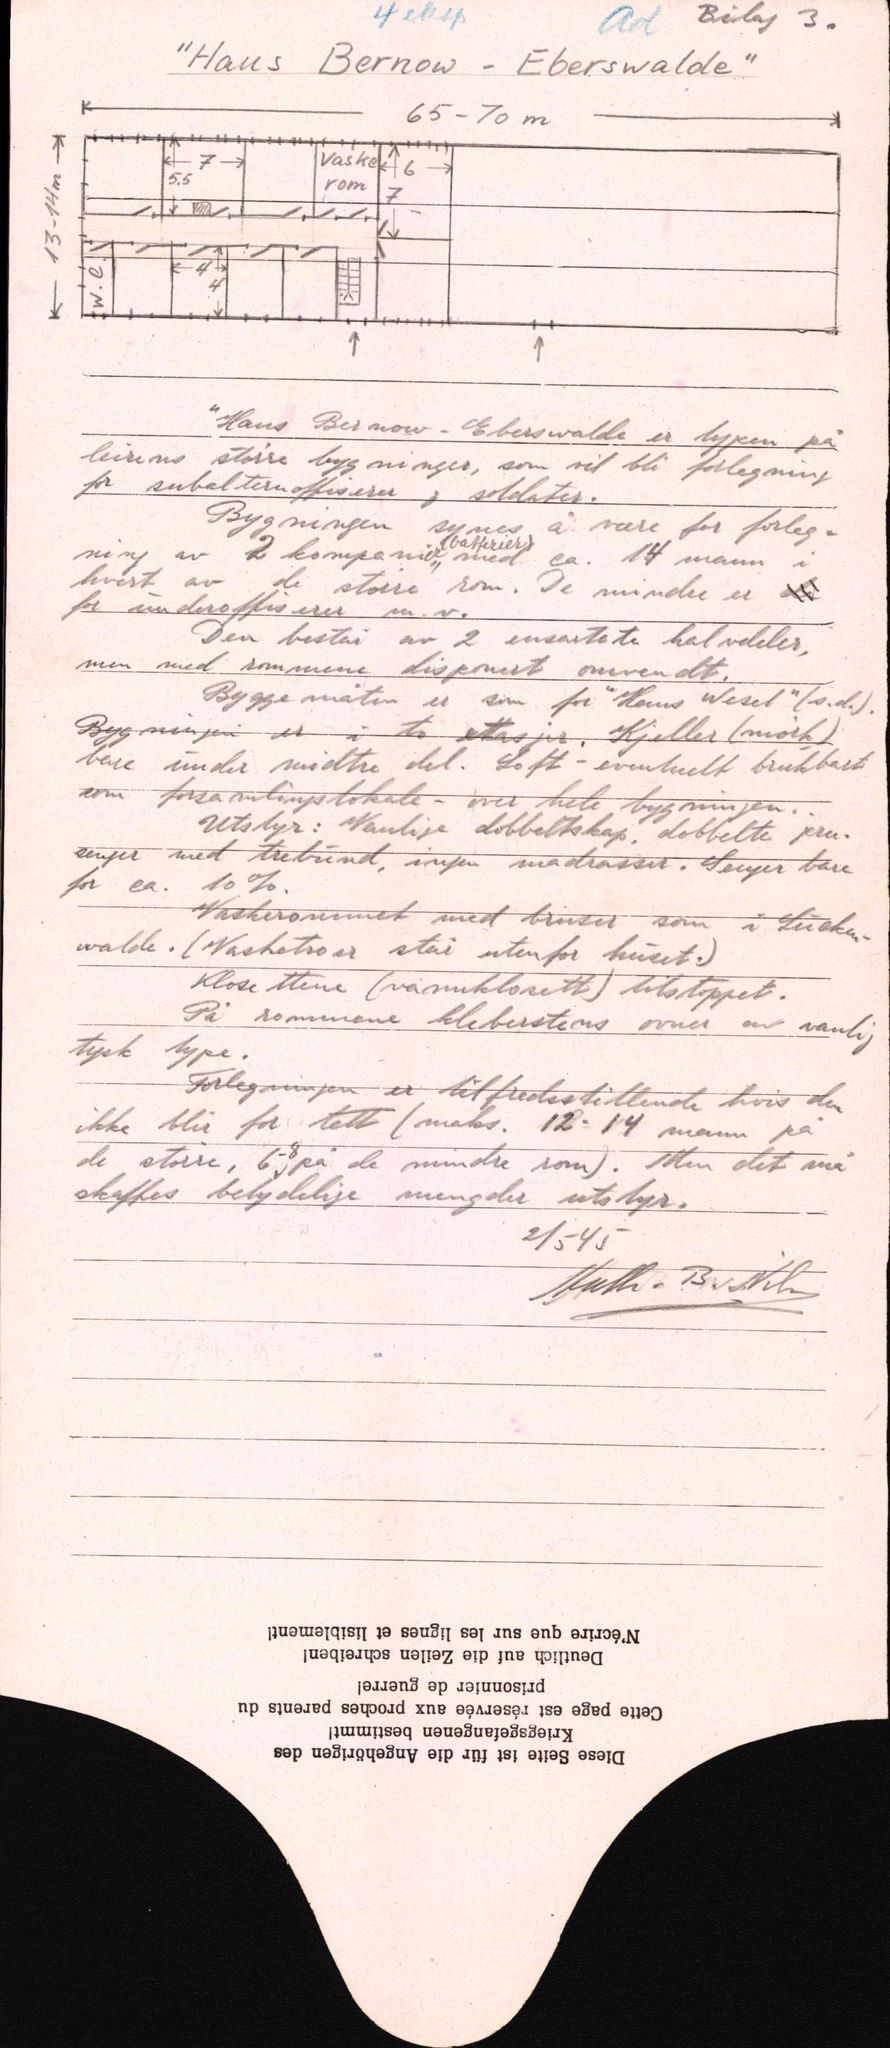 Ad Bilag 3.
"Haus Bernow - Eberswalde"
65-70 m
13-14 m
7
5.5
Vaske
rom
6
7
W.C.
4
4
"Haus Bernow - Eberswalde er typen på
leirens større bygninger, som vil bli forlegning
for subalternoffiserer og soldater.
Bygningen synes å være for forleg-
ning av 2 kompanier (batterier) med ca. 14 mann i
hvert av de større rom. De mindre er
for underoffiserer m.v.
Den består av 2 ensartete halvdeler,
men med rommene disponert omvendt.
Byggemåten er som for "Haus Wesel" (s.d.).
Bygningen er i to etasjer. Kjeller (mørk)
bare under midtre del. Loft - eventuelt brukbart
som forsamlingslokale - over hele bygningen.
Utstyr: Vanlige dobbeltskap, dobbelte jern-
senger med trebund, ingen madrasser. Senger bare
for ca. 10 %.
Vaskerommet med bruser som i Lucken-
walde. (Vasketroer står utenfor huset.)
Klosettene (vannklosett) tilstoppet.
På rommene kleberstens ovner av vanlig
tysk type.
Forlegningen er tilfredsstillende hvis den
ikke blir for tett (maks. 12-14 mann på
de større, 6-8 på de mindre rom). Men det må
skaffes betydelige mengder utstyr.
2/5 45
Diese Seite ist für die Angehörigen des
Kriegsgefangenen bestimmt!
Cette page est réservée aux proches parents du
prisonnier de guerre!
Deutlich auf die Zeilen schreiben!
N'écrire que sur les lignes et lisiblement!